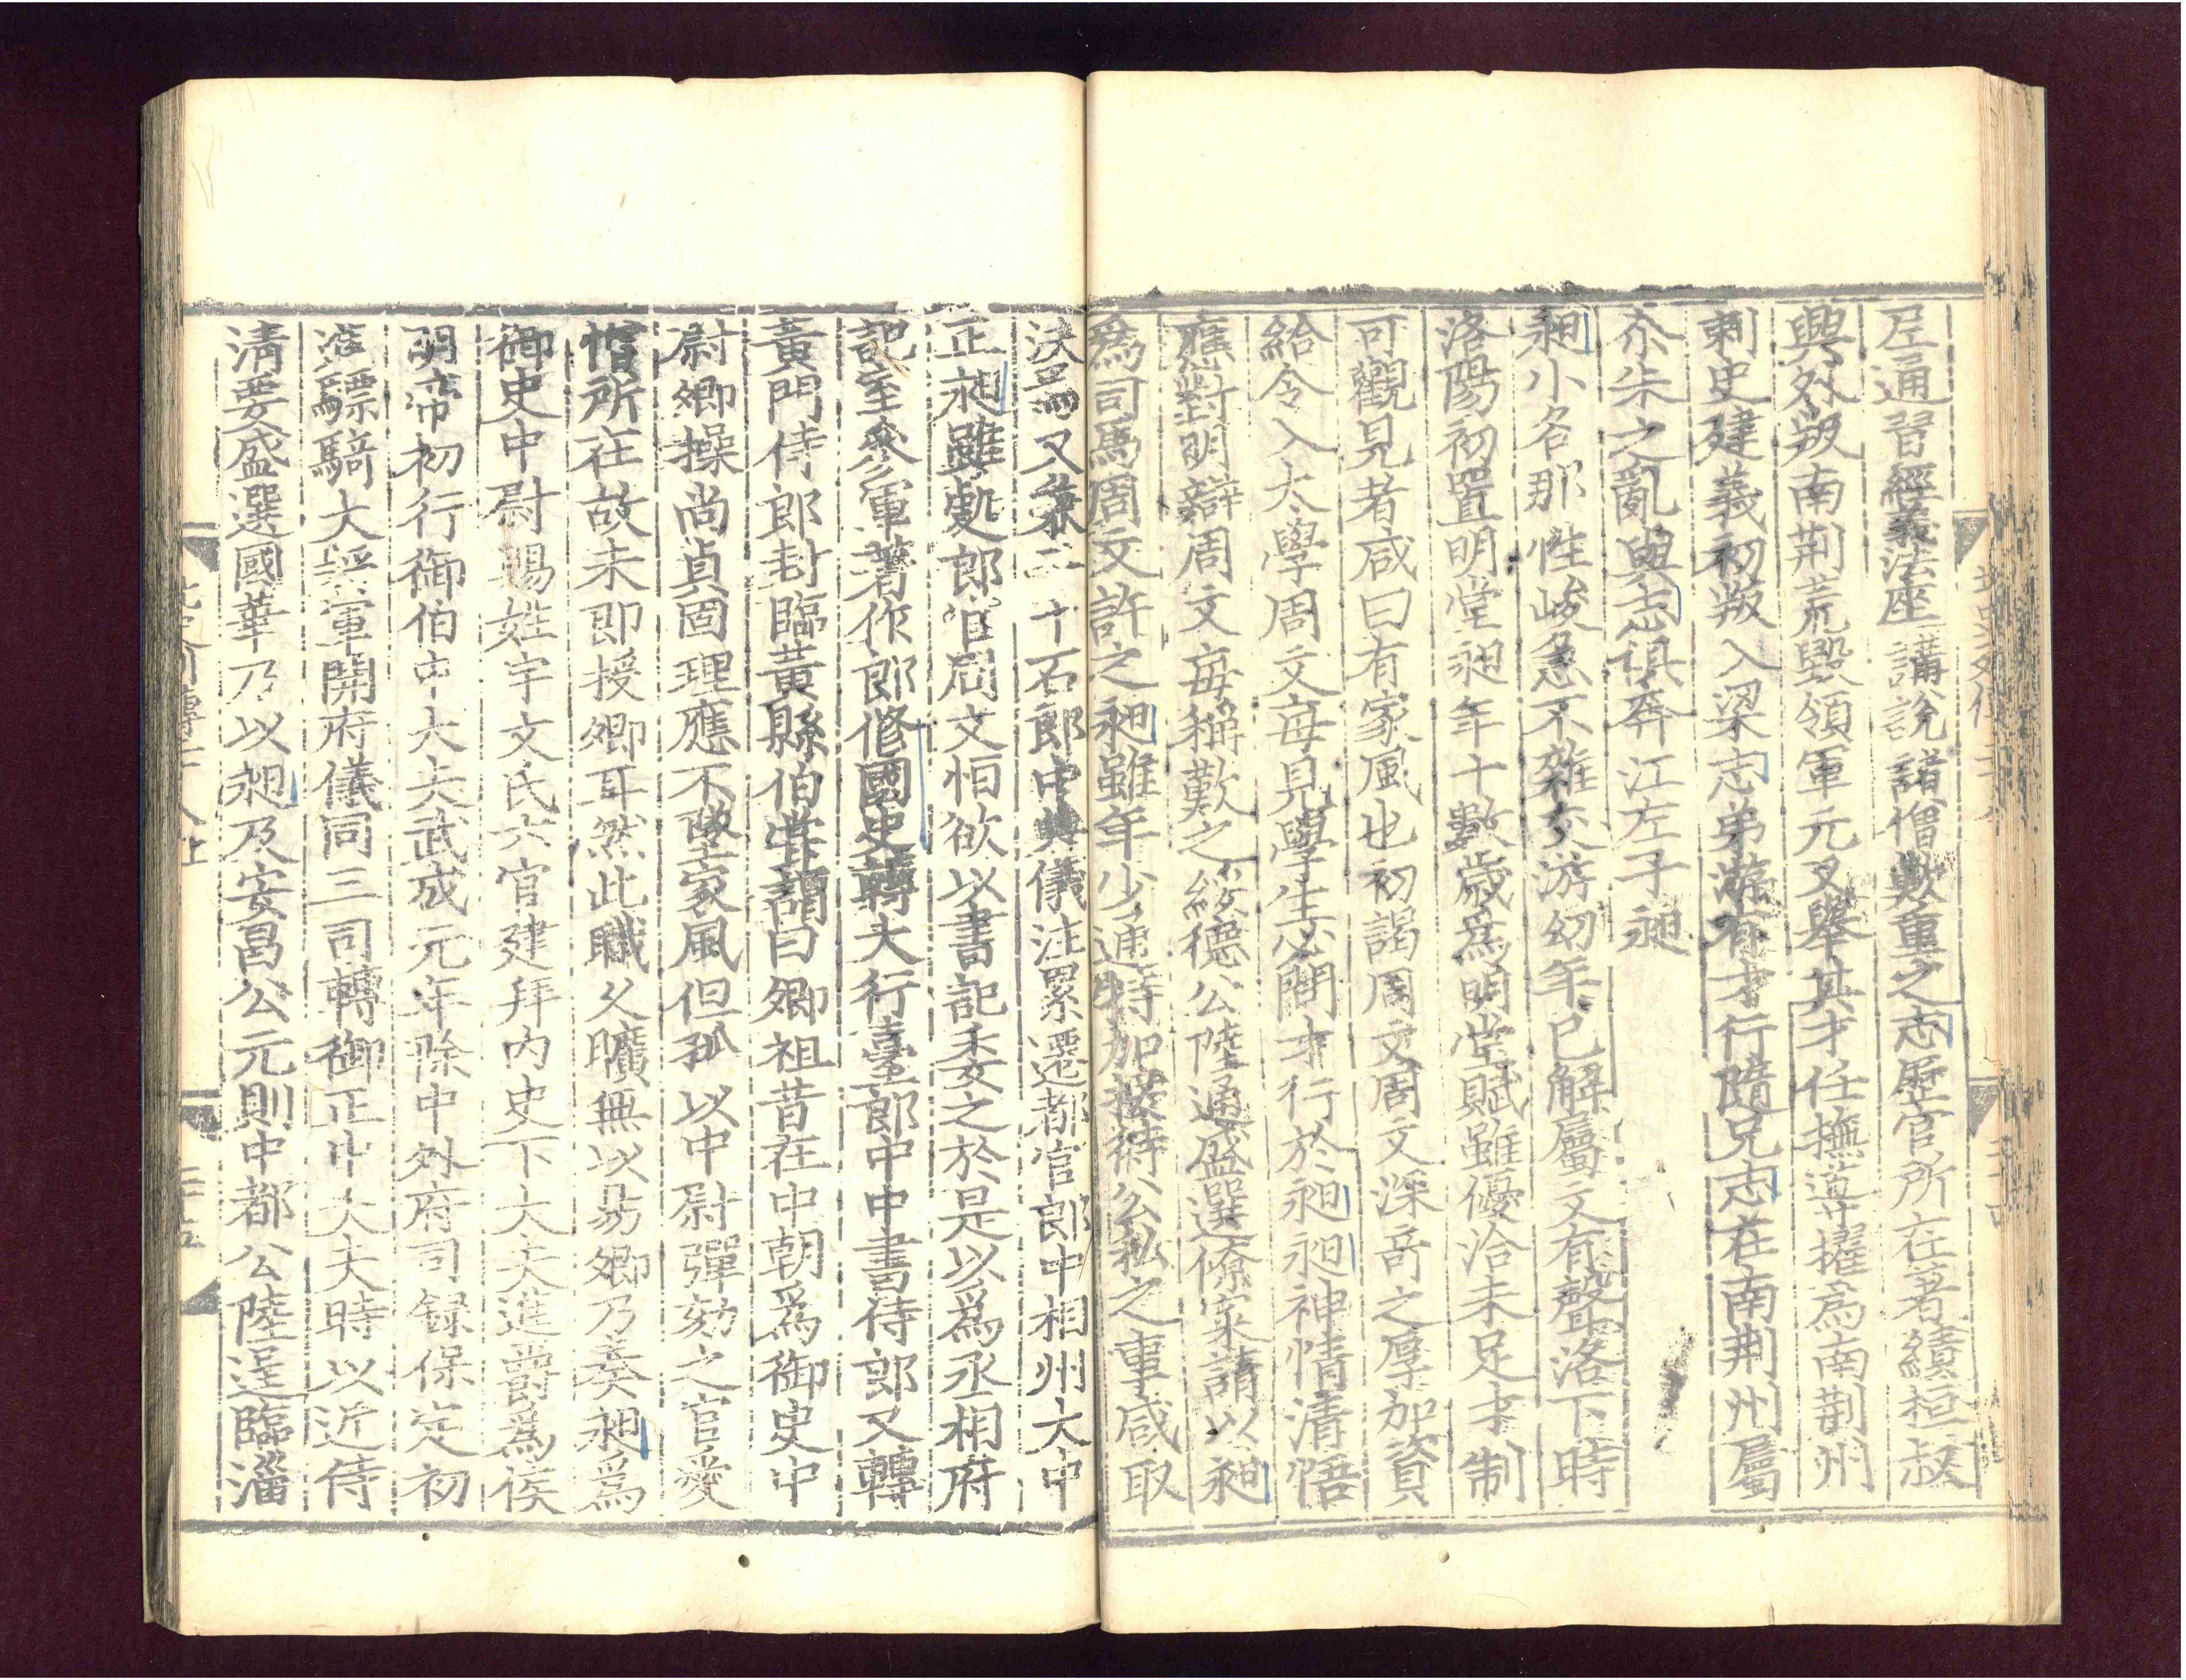 左通習經義法座講說諸僧歎重之志歷官所在著績桓叔
興外叛南荆荒毀領軍元叉舉其才任撫導擢爲南荆州
刺史建義初叛入梁志弟游有才行隨兄志在南荆州屬
尒朱之亂與志俱奔江左子昶
昶小名那性峻急不雜交游幼年已解屬文有聲洛下時
洛陽初置明堂昶年十數歲爲明堂賦雖優洽未足才制
可觀見者咸曰有家風也初謁周文周文深奇之厚加資
給令入太學周文每見學生必問才行於昶昶神情清悟
應對明辯周文每稱歎之綏德公陸通盛選僚寀請以昶
爲司馬周文許之昶雖年少通特加接待公私之事咸取
決焉又兼二十石郎中典儀注累遷都官郎中相州大中
正昶雖處郎官周文恒欲以書記委之於是以爲丞相府
記室參軍著作郎修國史轉大行臺郎中中書侍郎又轉
黃門侍郎封臨黃縣伯嘗謂曰卿祖昔在中朝爲御史中
尉卿操尚貞固理應不墜家風但孤以中尉彈劾之官愛
憎所在故未即授卿耳然此職久曠無以易卿乃奏昶爲
御史中尉賜姓宇文氏六官建拜內史下大夫進爵爲侯
明帝初行御伯中大夫武成元年除中外府司録保定初
進驃騎大將軍開府儀同三司轉御正中大夫時以近侍
清要盛選國華乃以昶及安昌公元則中都公陸逞臨淄